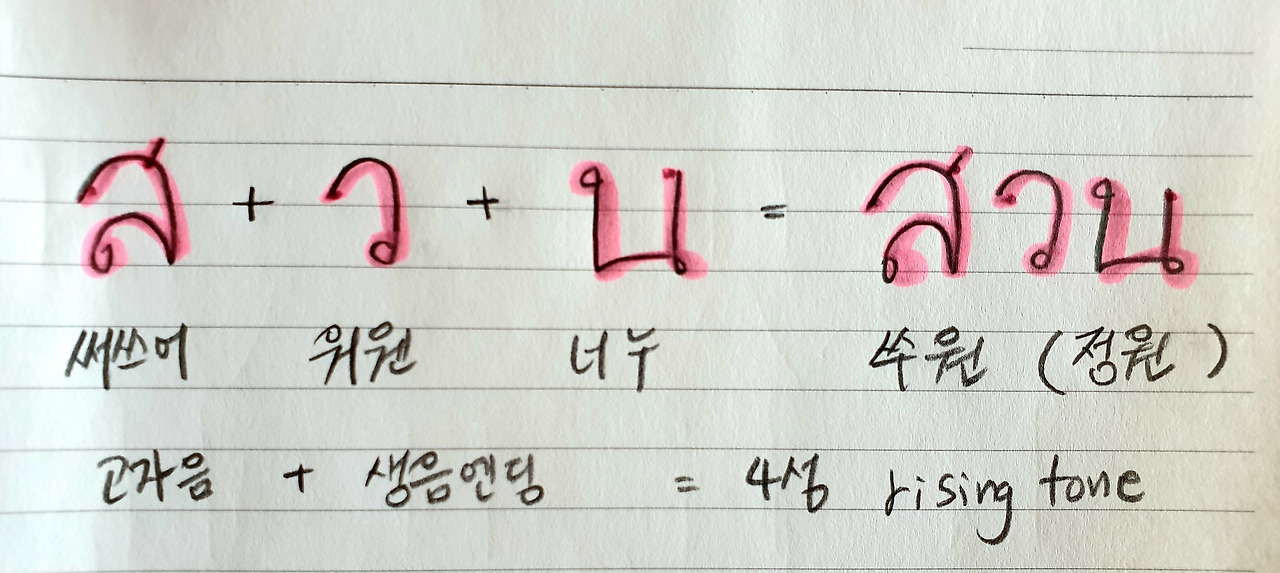 ส + ว + น = สวน
써쓰어 워웬 너누 쑤원 (정원)
고자음 + 생음엔딩 = 4성 rising tone